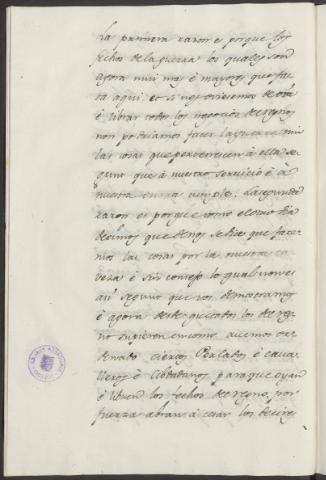 La primera razon es porque los
fechos de la guerra los quales son
agora mui mas é mayores que fas
ta aqui, et si nos oviesemos de oír
é librar todos los negocios del regno
non podriamos facer la guerra nin
las cosas que pertenescen á ella se
gunt que á nuestro servicio é á
nuestra onrra cumple. La segunda
razon es porque como el otro dia
decimos que de nos se dice que face
mos las cosas por la nuestra ca
veza é sin consejo lo qual non es
asi segunt que vos demostramos
é agora desde que todos los del reg
no supieren en como avemos or
denado ciertos Perlados é cava
lleros é Cibdadanos para que oyan
é libren los fechos del regno, por
fuerza abran á cesar los decires